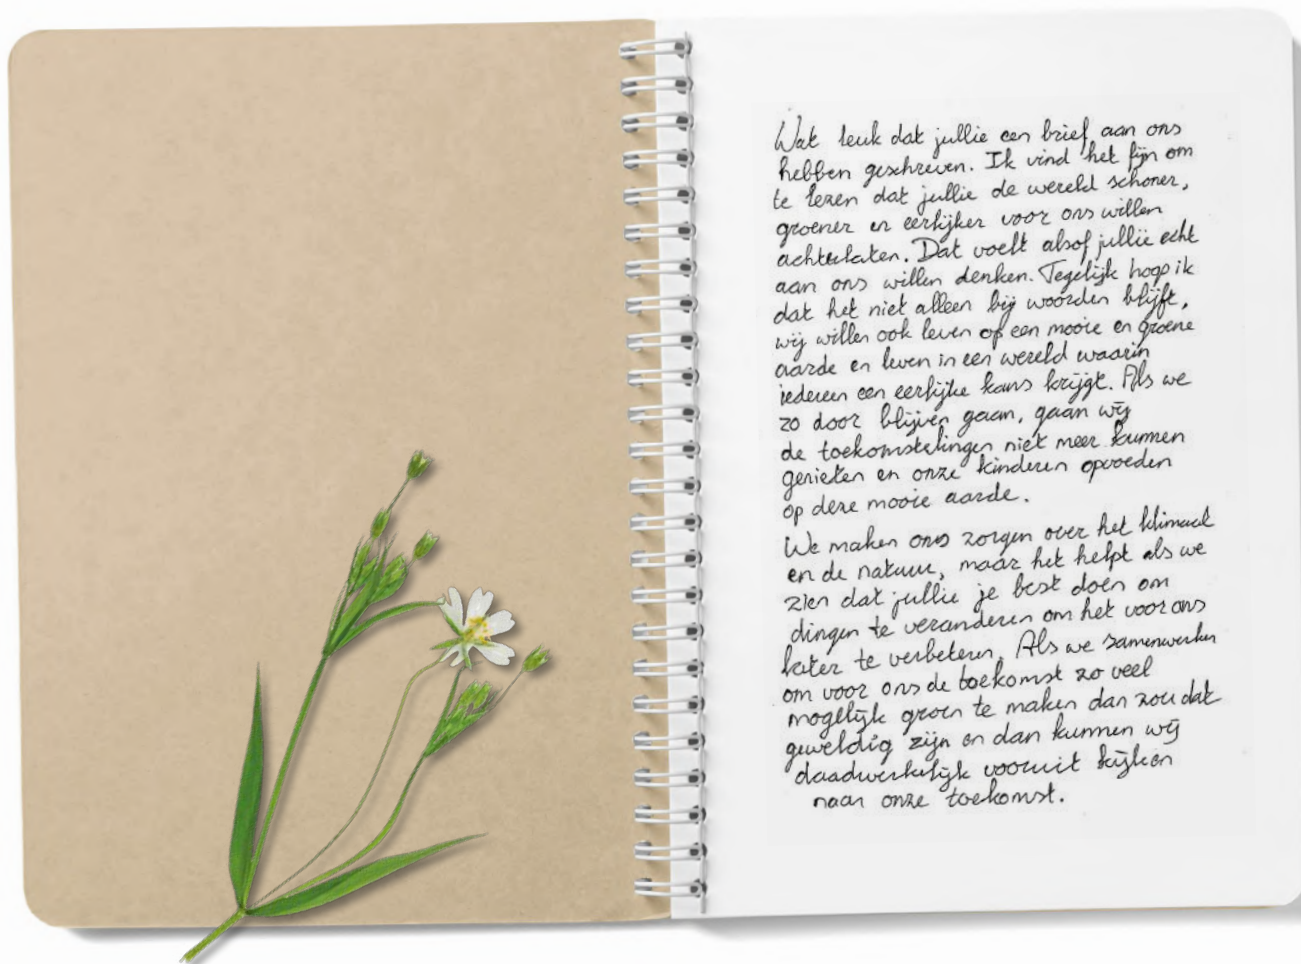 Wat leuk dat jullie een brief aan ons
hebben geschreven. Ik vind het fijn om
te lezen dat jullie de wereld schoner,
groener en eerlijker voor ons willen
achterlaten. Dat voelt alsof jullie echt
aan ons willen denken. Tegelijk hoop ik
dat het niet alleen bij woorden blijft,
wij willen ook leven op een mooie en groene
aarde en leven in een wereld waarin
iedereen een eerlijke kans krijgt. Als we
zo door blijven gaan, gaan wij
de toekomstelingen niet meer kunnen
genieten en onze kinderen opvoeden
op deze mooie aarde.
We maken ons zorgen over het klimaat
en de natuur, maar het helpt als we
zien dat jullie je best doen om
dingen te veranderen om het voor ons
later te verbeteren. Als we samenwerken
om voor ons de toekomst zo veel
mogelijk groen te maken dan zou dat
geweldig zijn en dan kunnen wij
daadwerkelijk vooruit kijken
naar onze toekomst.